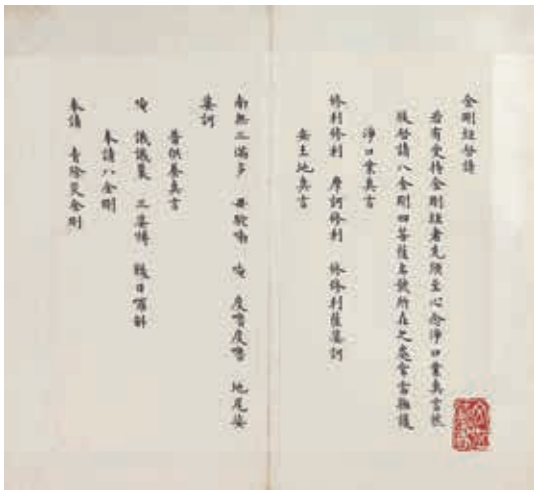 金剛經啓請
若有受持金剛經者先須至心念淨口業真言然
後啓請八金剛四菩薩名號所在之處常當擁護
淨口業真言
修利修利 摩訶修利 修修利薩婆訶
安土地真言
南無三滿多 母馱喃 唵 度嚕度嚕 地尾娑
婆訶
普供養真言
唵 誐誐曩 三婆嚩 韈日囉斛
奉請八金剛
奉請 青除災金剛